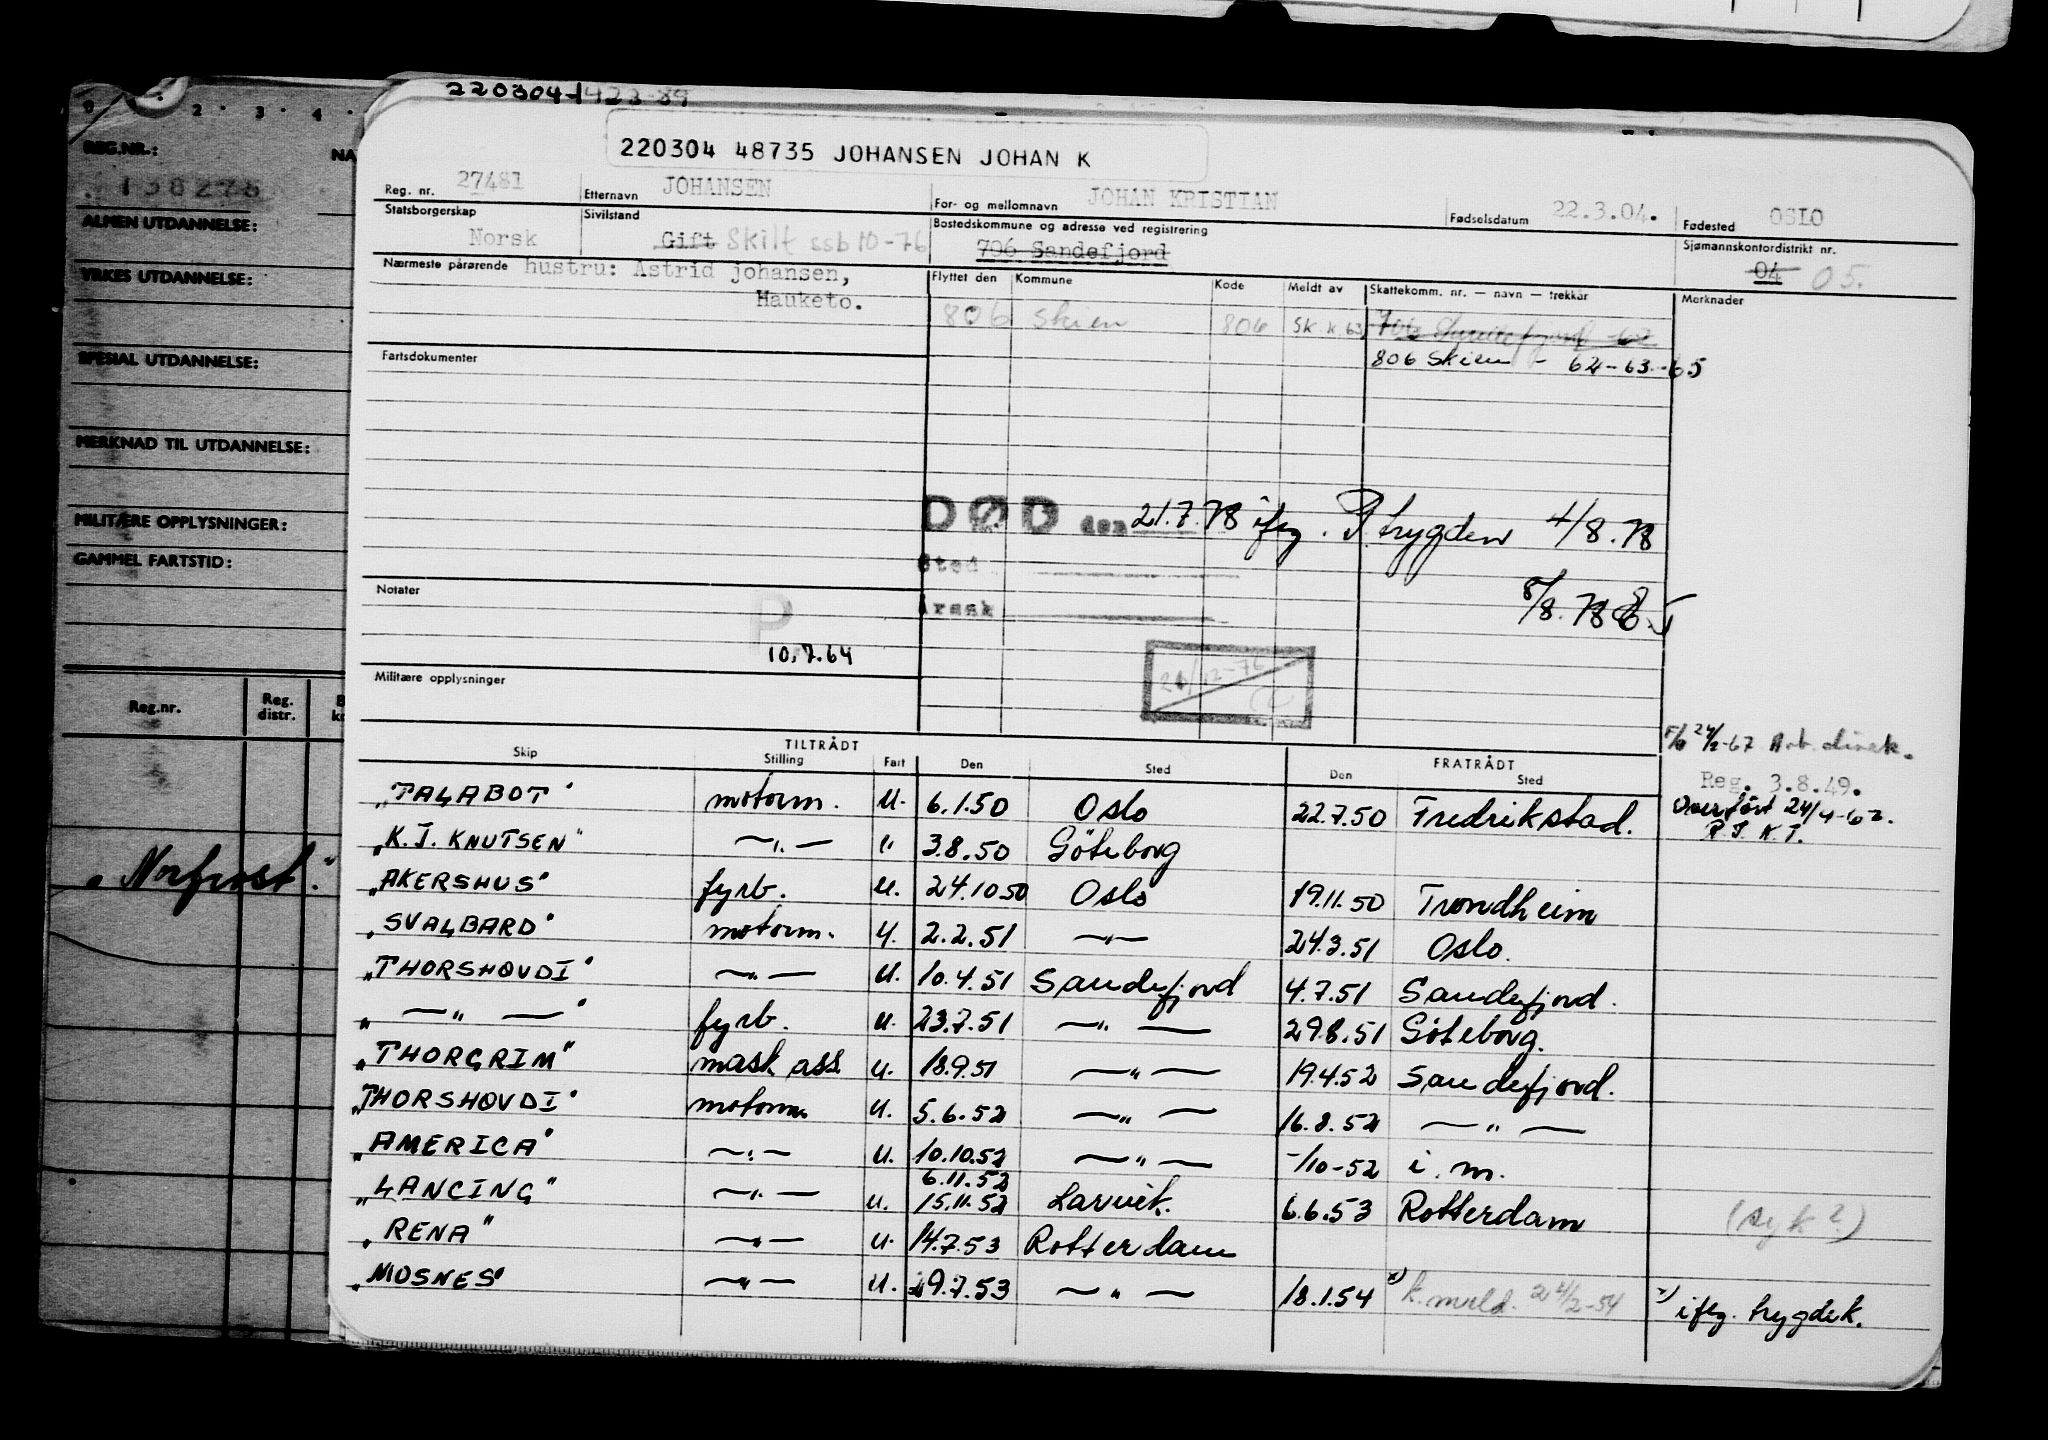 0 · 2 · 3 · 4 ·
REG.NR.:
NA
138278
ALMEN UTDANNELSE:
YRKES UTDANNELSE:
SPESIAL UTDANNELSE:
MERKNAD TIL UTDANNELSE:
MILITÆRE OPPLYSNINGER:
GAMMEL FARTSTID:
Reg.nr. Reg. distr.
"Norfrost."
220304-42389
220304 48735 JOHANSEN JOHAN K
Reg. nr. 27481 Etternavn JOHANSEN For- og mellomnavn JOHAN KRISTIAN Fødselsdatum 22.3.04. Fødested OSLO
Statsborgerskap Sivilstand Bostedskommune og adresse ved registrering Sjømannskontordistrikt nr.
Norsk Gift Skilt ssb 10-76 706 Sandefjord 04 05.
Nærmeste pårørende hustru: Astrid johansen,
Hauketo.
Flyttet den Kommune Kode Meldt av Skattekomm. nr. — navn — trekkår Merknader
806 Skien 806 SK.k.63
806 Skien - 62-63-65
Fartsdokumenter
DØD den 21.7.78 iflg. R.trygden 4/8.78
Sted
Årsak
8/8.78
Notater
P
10.7.64
20/12-76
Militære opplysninger
24/2-67 Arb. direk.
TILTRÅDT FRATRÅDT
Skip Stilling Fart Den Sted Den Sted
Reg. 3.8.49.
Overført 24/4-62.
"TALABOT" motorm. u. 6.1.50 Oslo 22.7.50 Fredrikstad.
"K.J. KNUTSEN" —"— " 3.8.50 Göteborg
"AKERSHUS" fyrb. u. 24.10.50 Oslo 19.11.50 Trondheim
"SVALBARD" motorm. u. 2.2.51 —"— 24.3.51 Oslo.
"THORSHØVDI" —"— u. 10.4.51 Sandefjord 4.7.51 Sandefjord.
" —"— " fyrb. u. 23.7.51 —"— 29.8.51 Göteborg.
"THORGRIM" mask ass. u. 18.9.51 —"— 19.4.52 Sandefjord.
"THORSHØVDI" motorm u. 5.6.52 —"— 16.8.52 —"—
"AMERICA" —"— u. 10.10.52 —"— -/10-52 i.m.
6.11.52
"LANCING" —"— u. 15.11.52 Larvik. 6.6.53 Rotterdam (syk?)
"RENA" —"— u. 14.7.53 Rotterdam
"MOSNES" —"— u. 29.7.53 —"— 18.1.54 x) k.meld. 24/2-54 x) iflg. trygdek.